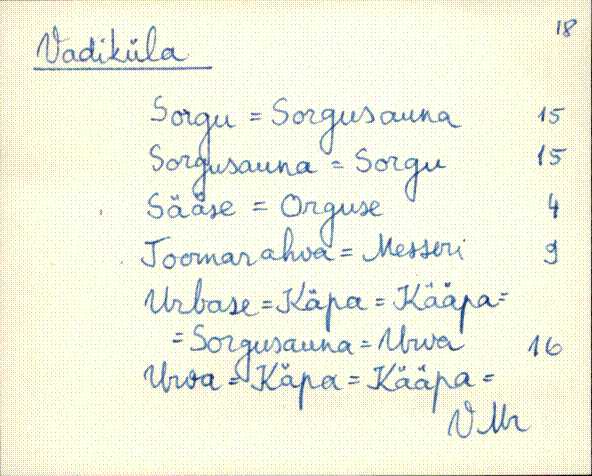 18
Vadiküla
Sorgu = Sorgusauna 15
Sorgusauna = Sorgu 15
Sääse = Orguse 4
Toomarahva = Messeri 9
Urbase = Käpa = Kääpa =
= Sorgusauna = Urva 16
Urva = Käpa = Kääpa =
VMr